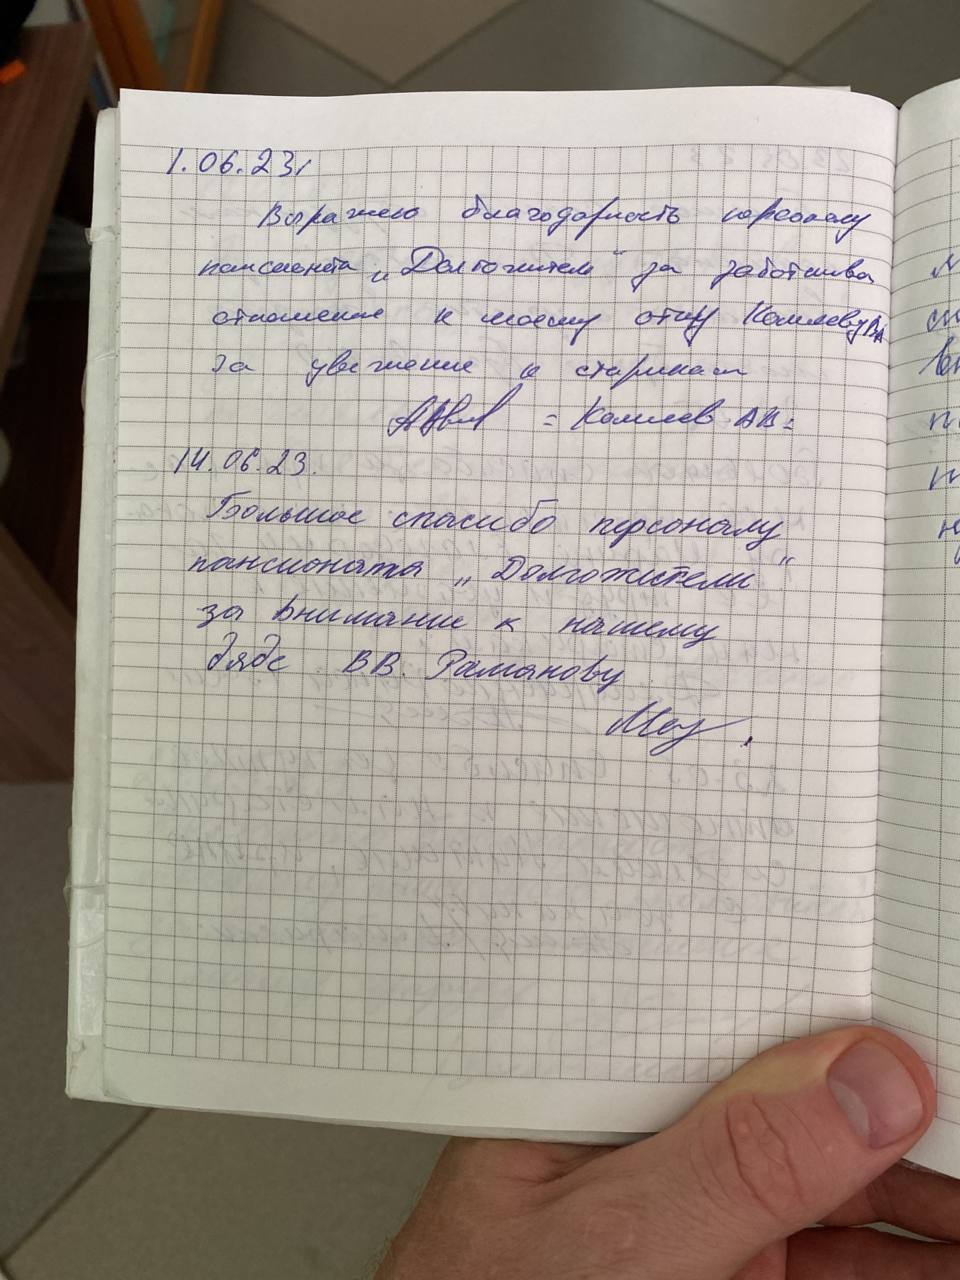 1.06.23г
Выражаю благодарность персоналу
пансионата „Долгожители“ за заботливое
отношение к моему отцу
за уважение к старикам
АВ
14.06.23.
Большое спасибо персоналу
пансионата „Долгожители“
за внимание к нашему
дяде ВВ. Раманову